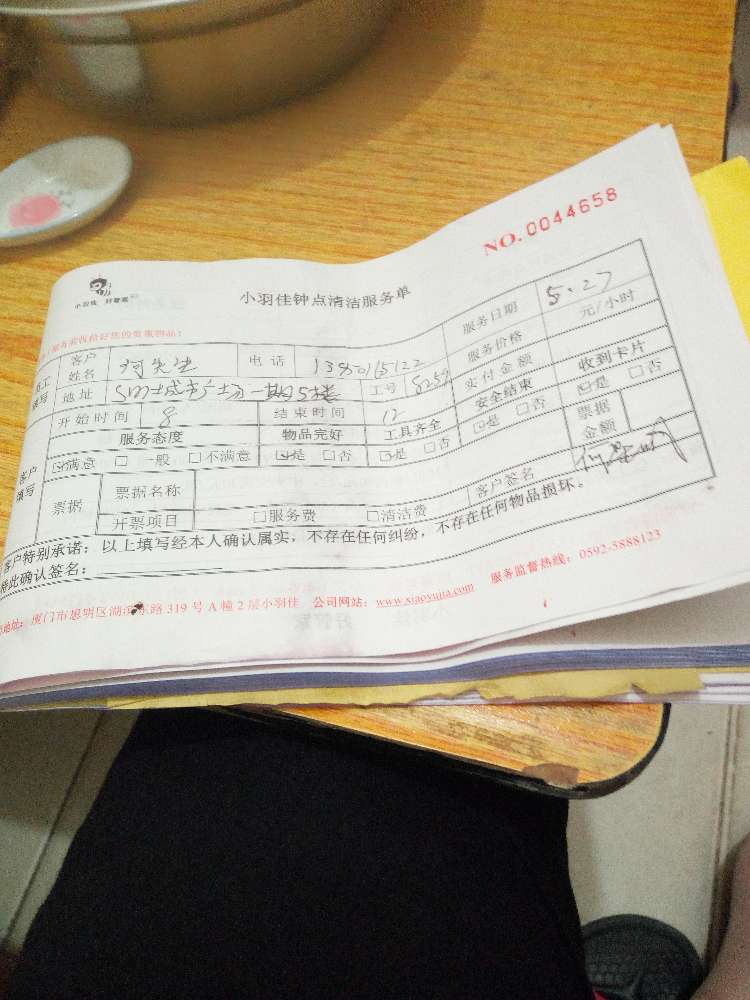 NO.0044658
小羽佳 好管家
小羽佳钟点清洁服务单
服务前收检好您的贵重物品!
员工填写 客户姓名 何先生 电话 服务日期 5.27
地址 SM城市广场一期5楼 工号 8259 服务价格 元/小时
开始时间 8 结束时间 12 实付金额
服务态度 物品完好 工具齐全 安全结束 收到卡片
客户填写 ☑满意 □ 一般 □不满意 ☑是 □否 ☑是 □否 ☑是 □否 ☑是 □否
票据 票据名称 票据金额
开票项目 □服务费 □清洁费 客户签名
客户特别承诺:以上填写经本人确认属实,不存在任何纠纷,不存在任何物品损坏。
特此确认签名:
地址:厦门市思明区湖滨东路319号A幢2层小羽佳 公司网站:www.xiaoyujia.com 服务监督热线:0592-5888123